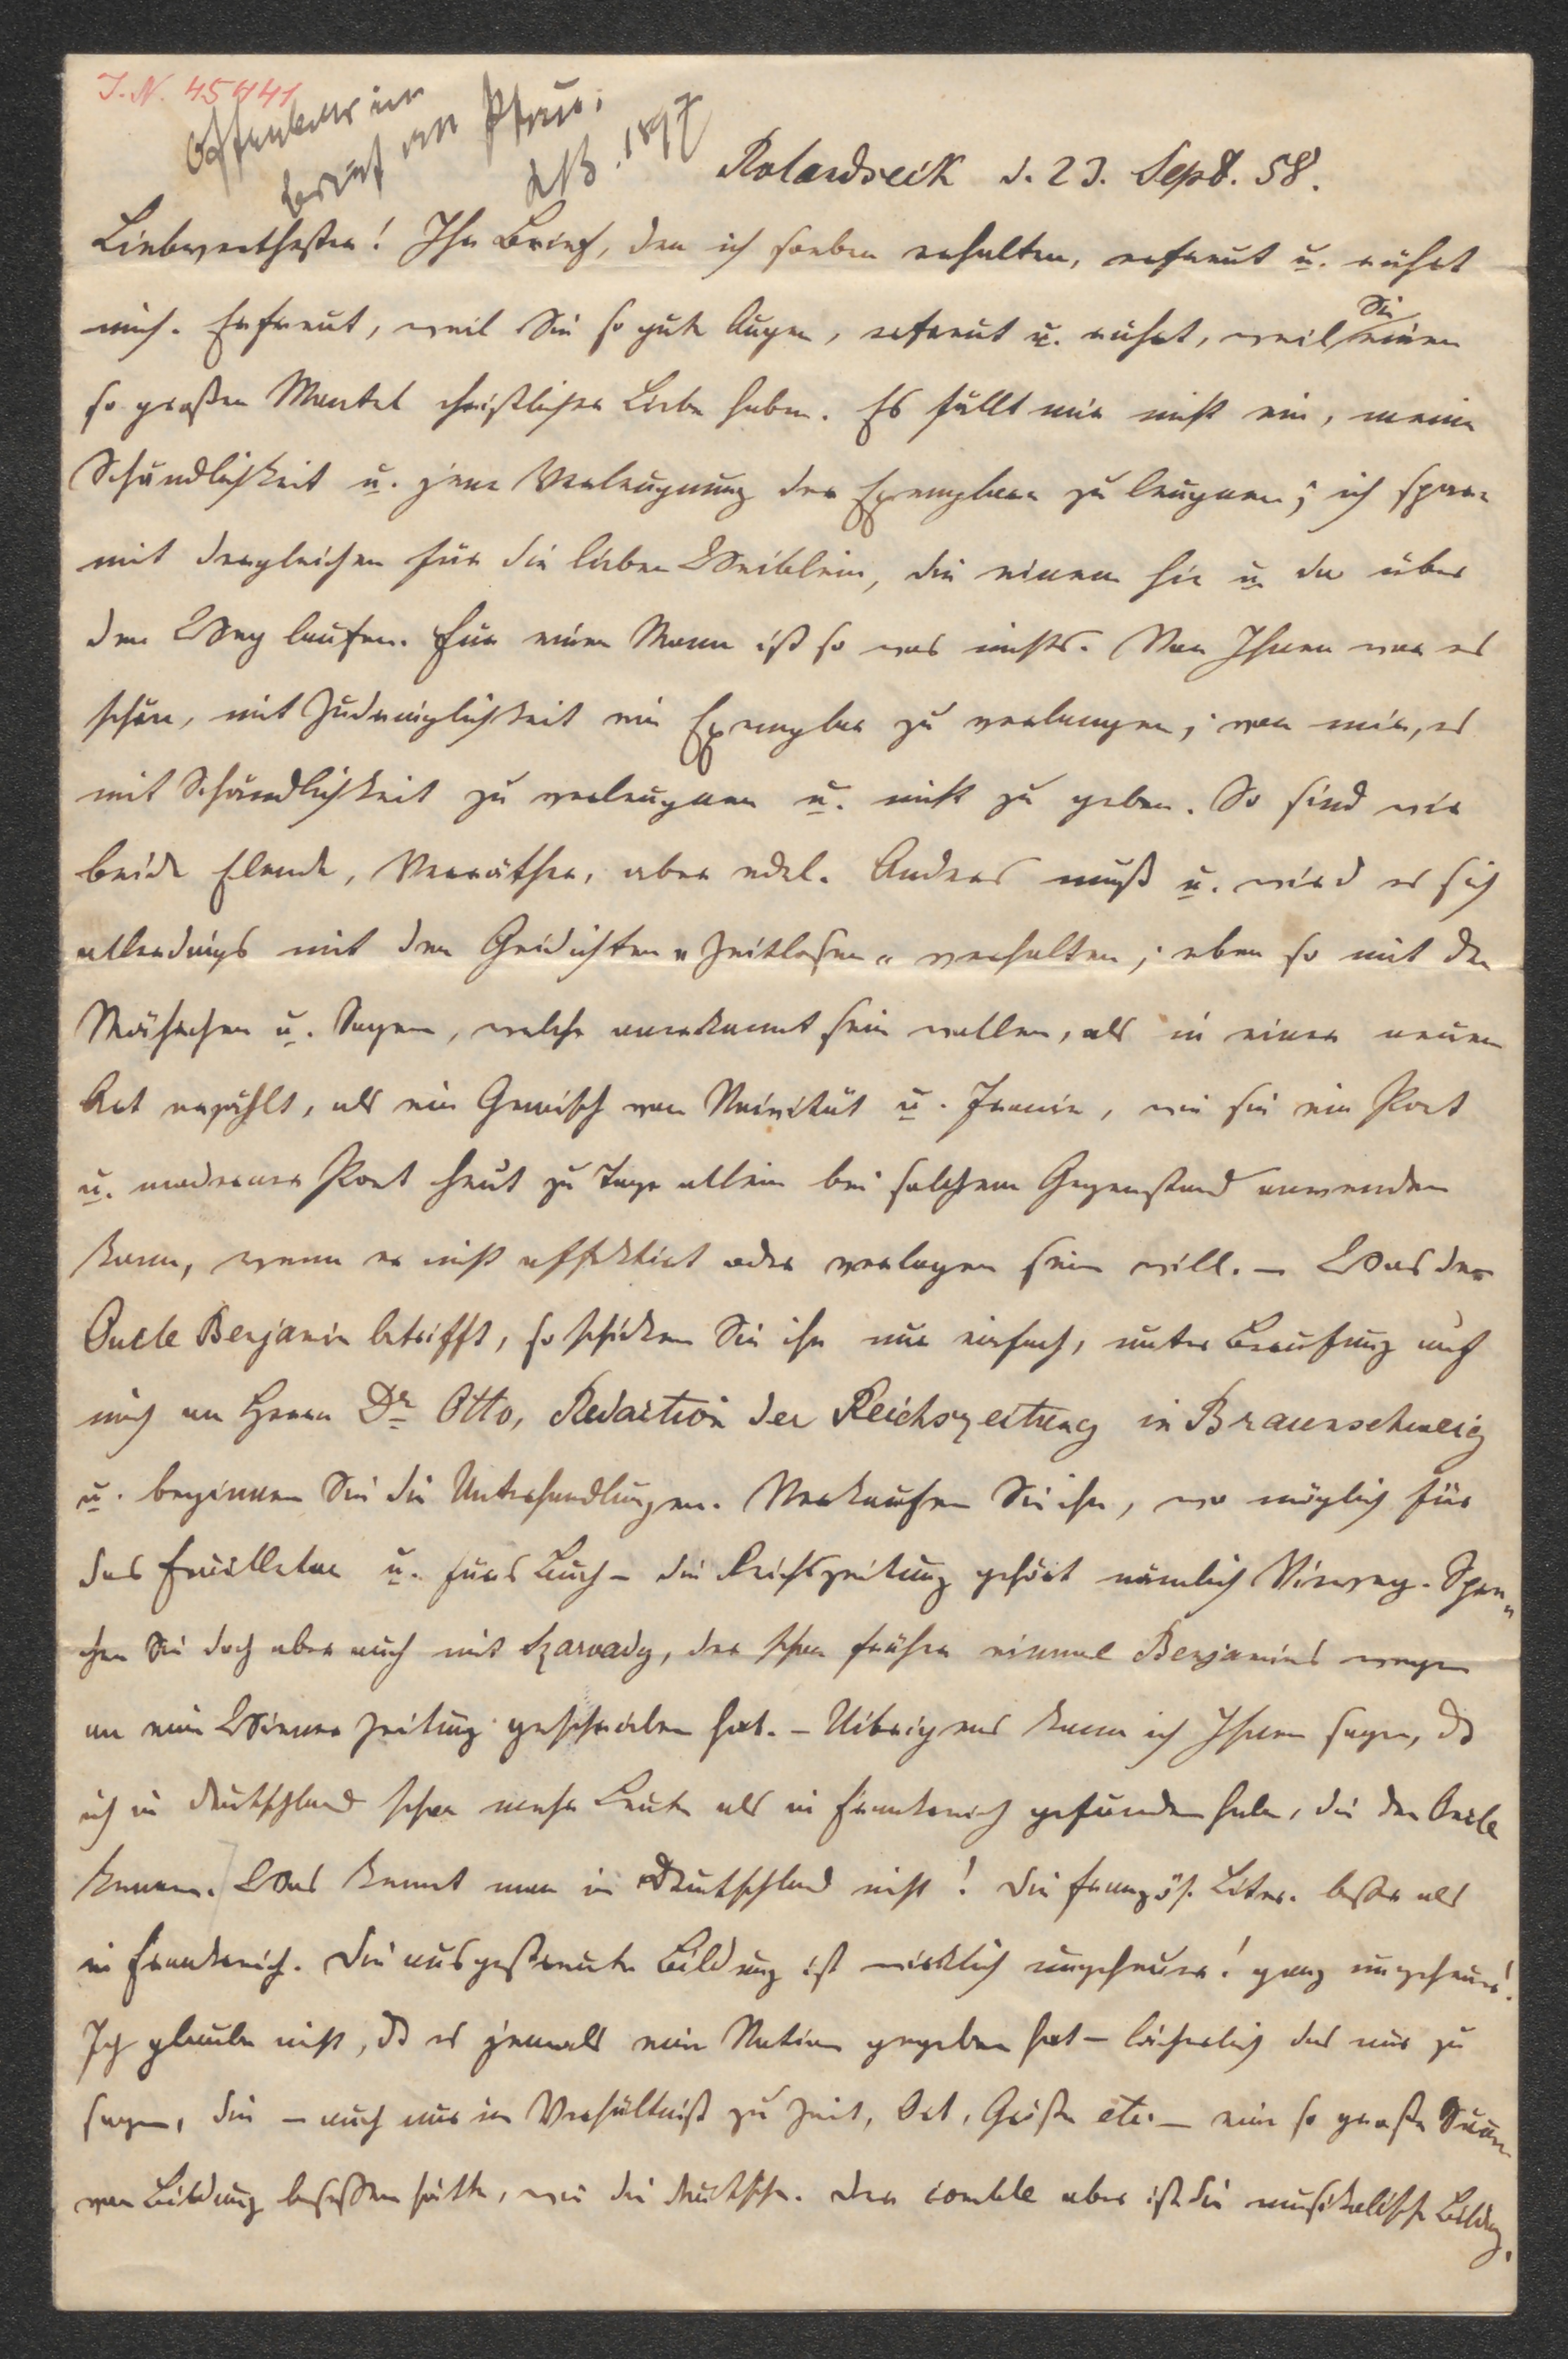 I. N. 45441
Offenbar ein
Brief an Pfau.
LAF. 1897
Rolandseck d. 23. Sept. 58.
Liebwerthester! Ihr Brief, den ich soeben erhalten, erfreut u. rührt
mich. Erfreut, weil Sie so gute Augen, erfreut u. rührt, weil Sie einen
so großen Mantel christlicher Liebe haben. Es fällt mir nicht ein, meine
Schändlichkeit u. jene Verleugnung der Exemplare zu leugnen; ich spare
mit dergleichen für die lieben Weiblein, die einem hie u. da über
den Weg laufen. Für einen Mann ist so was nichts. Von Ihnen war es
schön, mit Zudringlichkeit ein Exemplar zu verlangen; von mir, es
mit Schändlichkeit zu verleugnen u. nicht zu geben. So sind wir
beide Elende, Verräther, aber edel. Anders muß u. wird es sich
allerdings mit den Gedichten „Zeitlosen“ verhalten; eben so mit den
Mährchen u. Sagen, welche anerkannt sein wollen, als in einer neuen
Art erzählt, als ein Gemisch von Naivität u. Ironie, wie sie ein Poet
u. moderner Poet heut zu Tage allein bei solchem Gegenstand anwenden
kann, wenn er nicht affektirt oder verlogen sein will. – Was den
Oncle Benjamin betrifft, so schicken Sie ihn nur einfach, unter Berufung auf
mich an Herrn Dr Otto, Redaction der Reichszeitung in Braunschweig
u. beginnen Sie die Unterhandlungen. Verkaufen Sie ihn, wo möglich für
das Feuilleton u. fürs Buch – die Reichszeitung gehört nämlich Vieweg. Spre„
chen Sie doch aber auch mit Szarvady, der schon früher einmal Benjamins wegen
an eine Wiener Zeitung geschrieben hat. – Uibrigens kann ich Ihnen sagen, dß
ich in Deutschland schon mehr Leute als in Frankreich gefunden habe, die den Oncle
kennen. Was kennt man in Deutschland nicht! Die französ. Liter. besser als
in Frankreich. Die ausgestreute Bildung ist wirklich ungeheuer! ganz ungeheuer!
Ich glaube nicht, dß es jemals eine Nation gegeben hat – lächerlich das nur zu
sagen, die – auch nur im Verhältniß zu Zeit, Ort, Größe etc. – eine so große Summe
von Bildung besessen hätte, wie die deutsche. Der comble aber ist die musikalische Bildung.